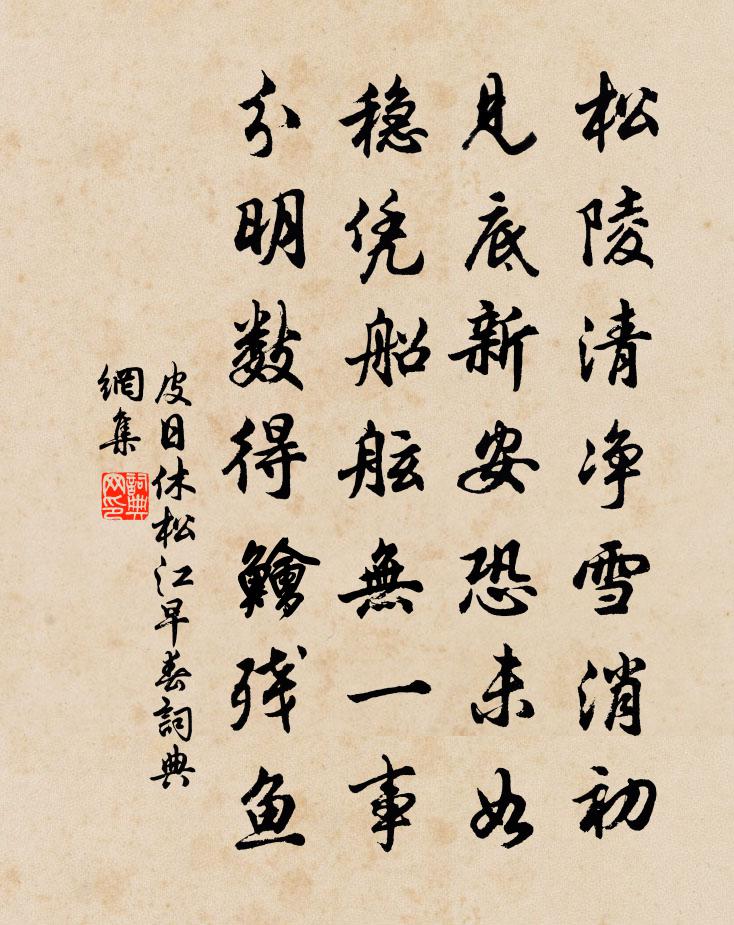 松陵清净雪消初
见底新安恐未如
穩凭船舷無一事
分明数得鱠残鱼
皮日休松江早春詞典
網集
詞典網印